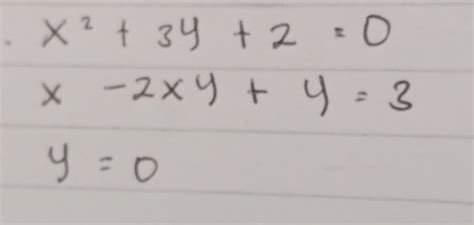 . x² + 3y + 2 = 0
x - 2xy + y = 3
y = 0